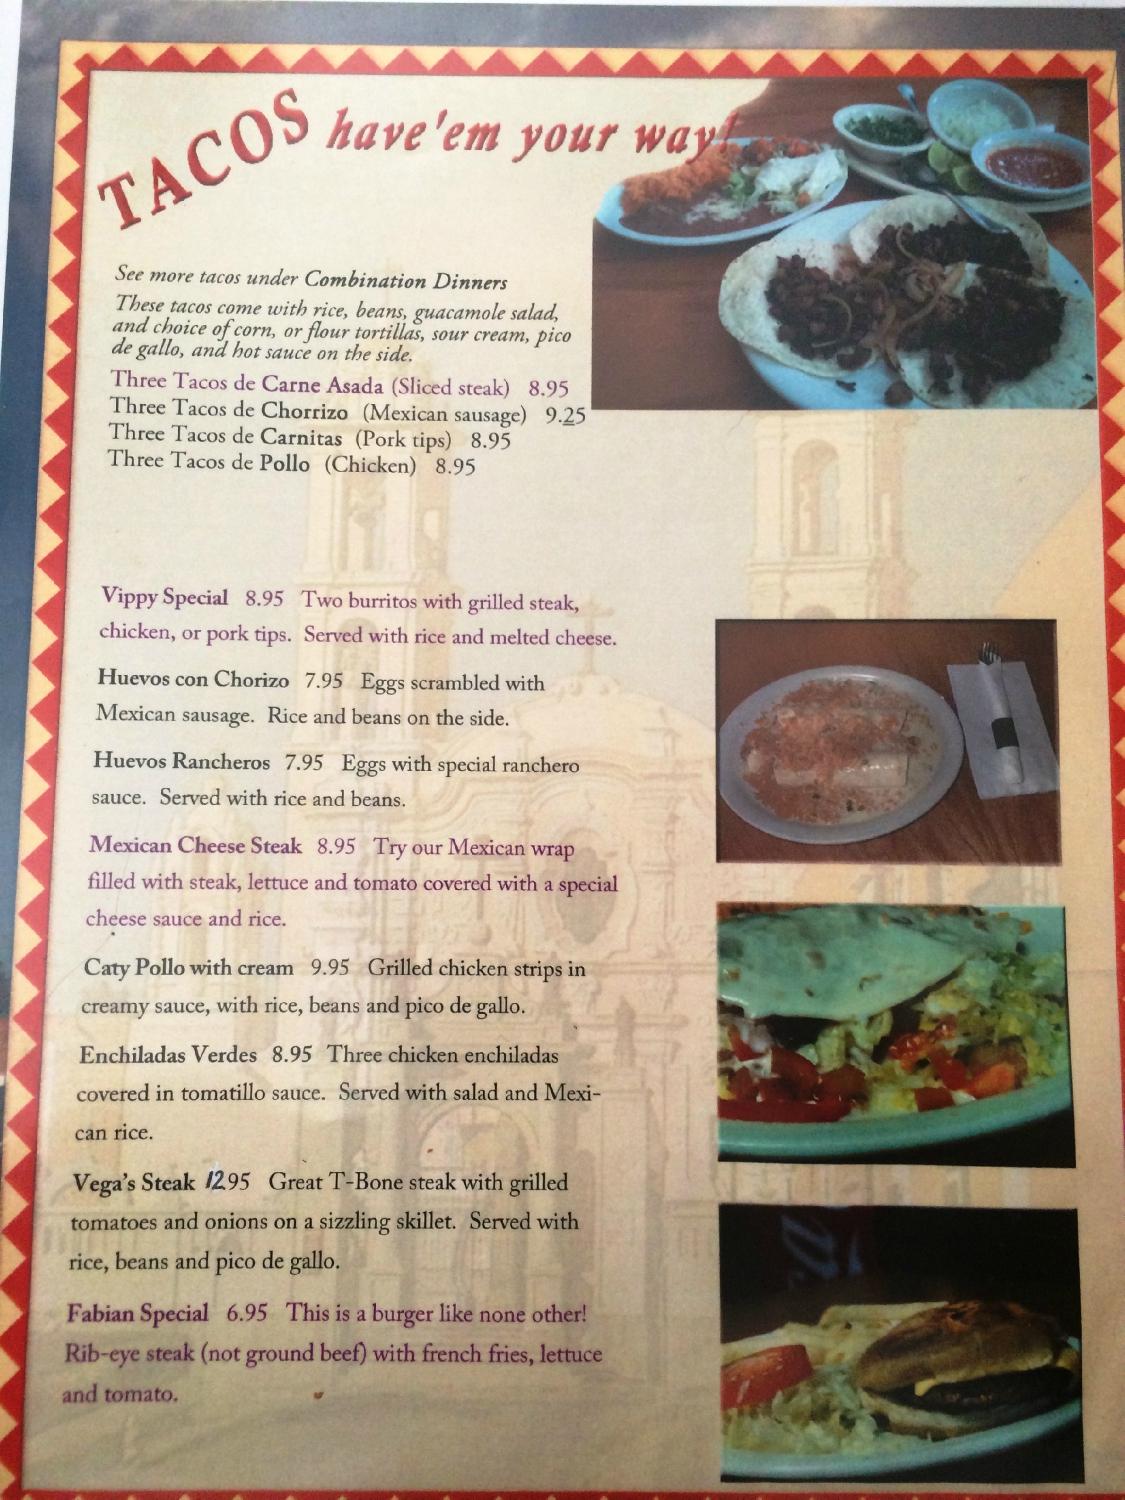 TACOS have'em your way!
See more tacos under Combination Dinners
These tacos come with rice, beans, guacamole salad,
and choice of corn, or flour tortillas, sour cream, pico
de gallo, and hot sauce on the side.
Three Tacos de Carne Asada (Sliced steak) 8.95
Three Tacos de Chorrizo (Mexican sausage) 9.25
Three Tacos de Carnitas (Pork tips) 8.95
Three Tacos de Pollo (Chicken) 8.95
Vippy Special 8.95 Two burritos with grilled steak,
chicken, or pork tips. Served with rice and melted cheese.
Huevos con Chorizo 7.95 Eggs scrambled with
Mexican sausage. Rice and beans on the side.
Huevos Rancheros 7.95 Eggs with special ranchero
sauce. Served with rice and beans.
Mexican Cheese Steak 8.95 Try our Mexican wrap
filled with steak, lettuce and tomato covered with a special
cheese sauce and rice.
Caty Pollo with cream 9.95 Grilled chicken strips in
creamy sauce, with rice, beans and pico de gallo.
Enchiladas Verdes 8.95 Three chicken enchiladas
covered in tomatillo sauce. Served with salad and Mexi-
can rice.
Vega's Steak 12.95 Great T-Bone steak with grilled
tomatoes and onions on a sizzling skillet. Served with
rice, beans and pico de gallo.
Fabian Special 6.95 This is a burger like none other!
Rib-eye steak (not ground beef) with french fries, lettuce
and tomato.